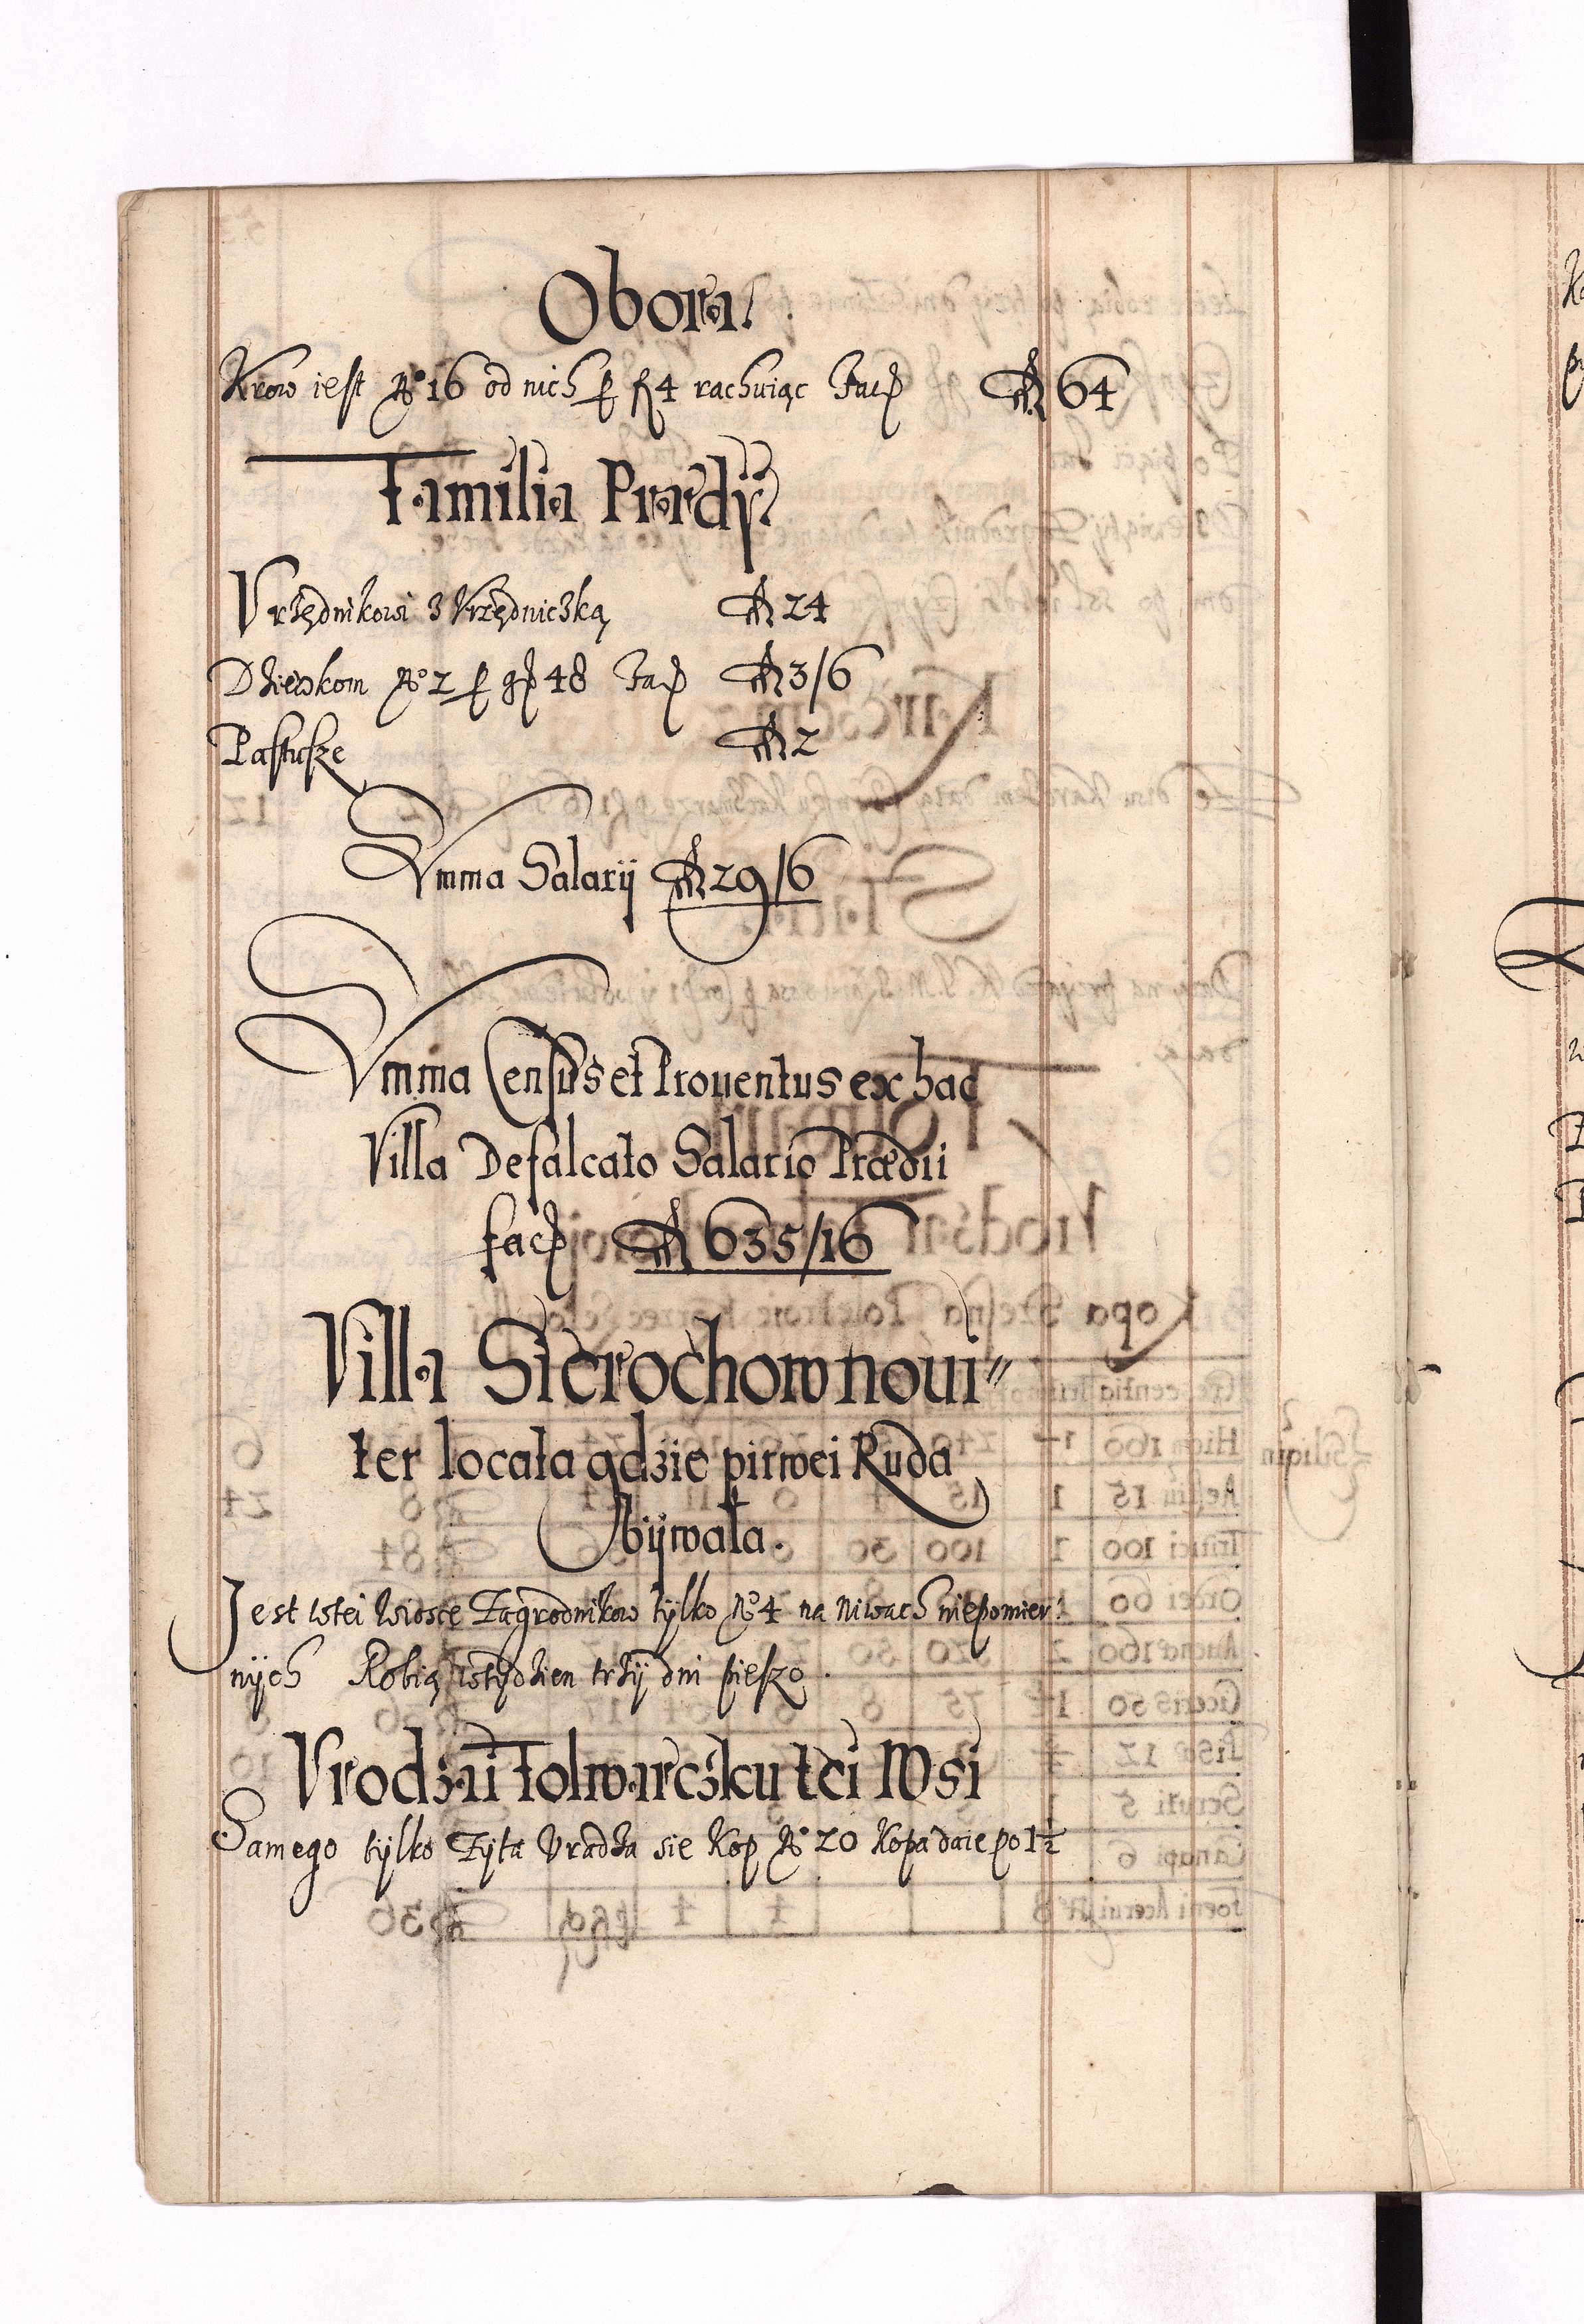 Obora.
Krow iest No 16 od nich p fl 4 rachuiąc Facit fl 64
Familia Prædij
Vrzędnikowi z Vrzędniczką fl 24
Dziewkom No 2 p gr 48 Facit fl 3/6
Pastusze fl 2
Summa Salarij fl 29/6
Summa Census et Prouentus ex hac
Villa Defalcato Salario Prædii
facit fl 635/16
Villa Sierochow noui"
ter locata gdzie pirwei Ruda
bÿwała.
Jest wtei wiosce Zagrodnikow tÿlko No 4 na Niwach niepomier:
nÿch Robią wtydzien trzÿ dni pieszo.
Vrodzai folwarczku tei Wsi
Samego tÿlko Zÿta Vradza sie Kop No 20 Kopa daie po 1½